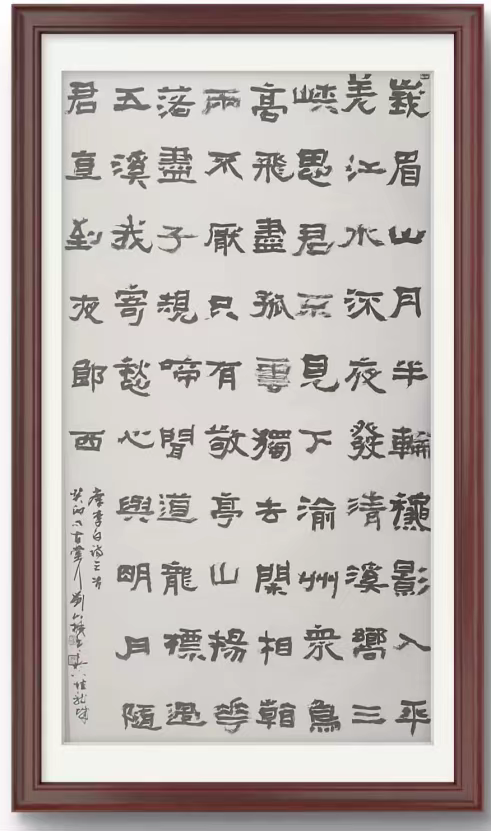 峩眉山月半輪穐影入平
羌江水深夜發清溪嚮三
峽思君不見下渝州衆鳥
高飛盡孤雲獨去閑相看
兩不厭只有敬亭山揚華
落盡子規啼聞道龍標過
五溪我寄愁心與明月隨
君直到夜郎西
唐李白詩三首
癸卯